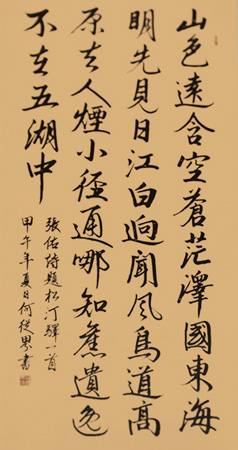 山色遠含空蒼茫澤國東海
明先見日江白迥聞風鳥道高
原去人煙小徑通哪知舊遺逸
不在五湖中
張佑詩題松汀驛一首
甲午年夏日何從界書